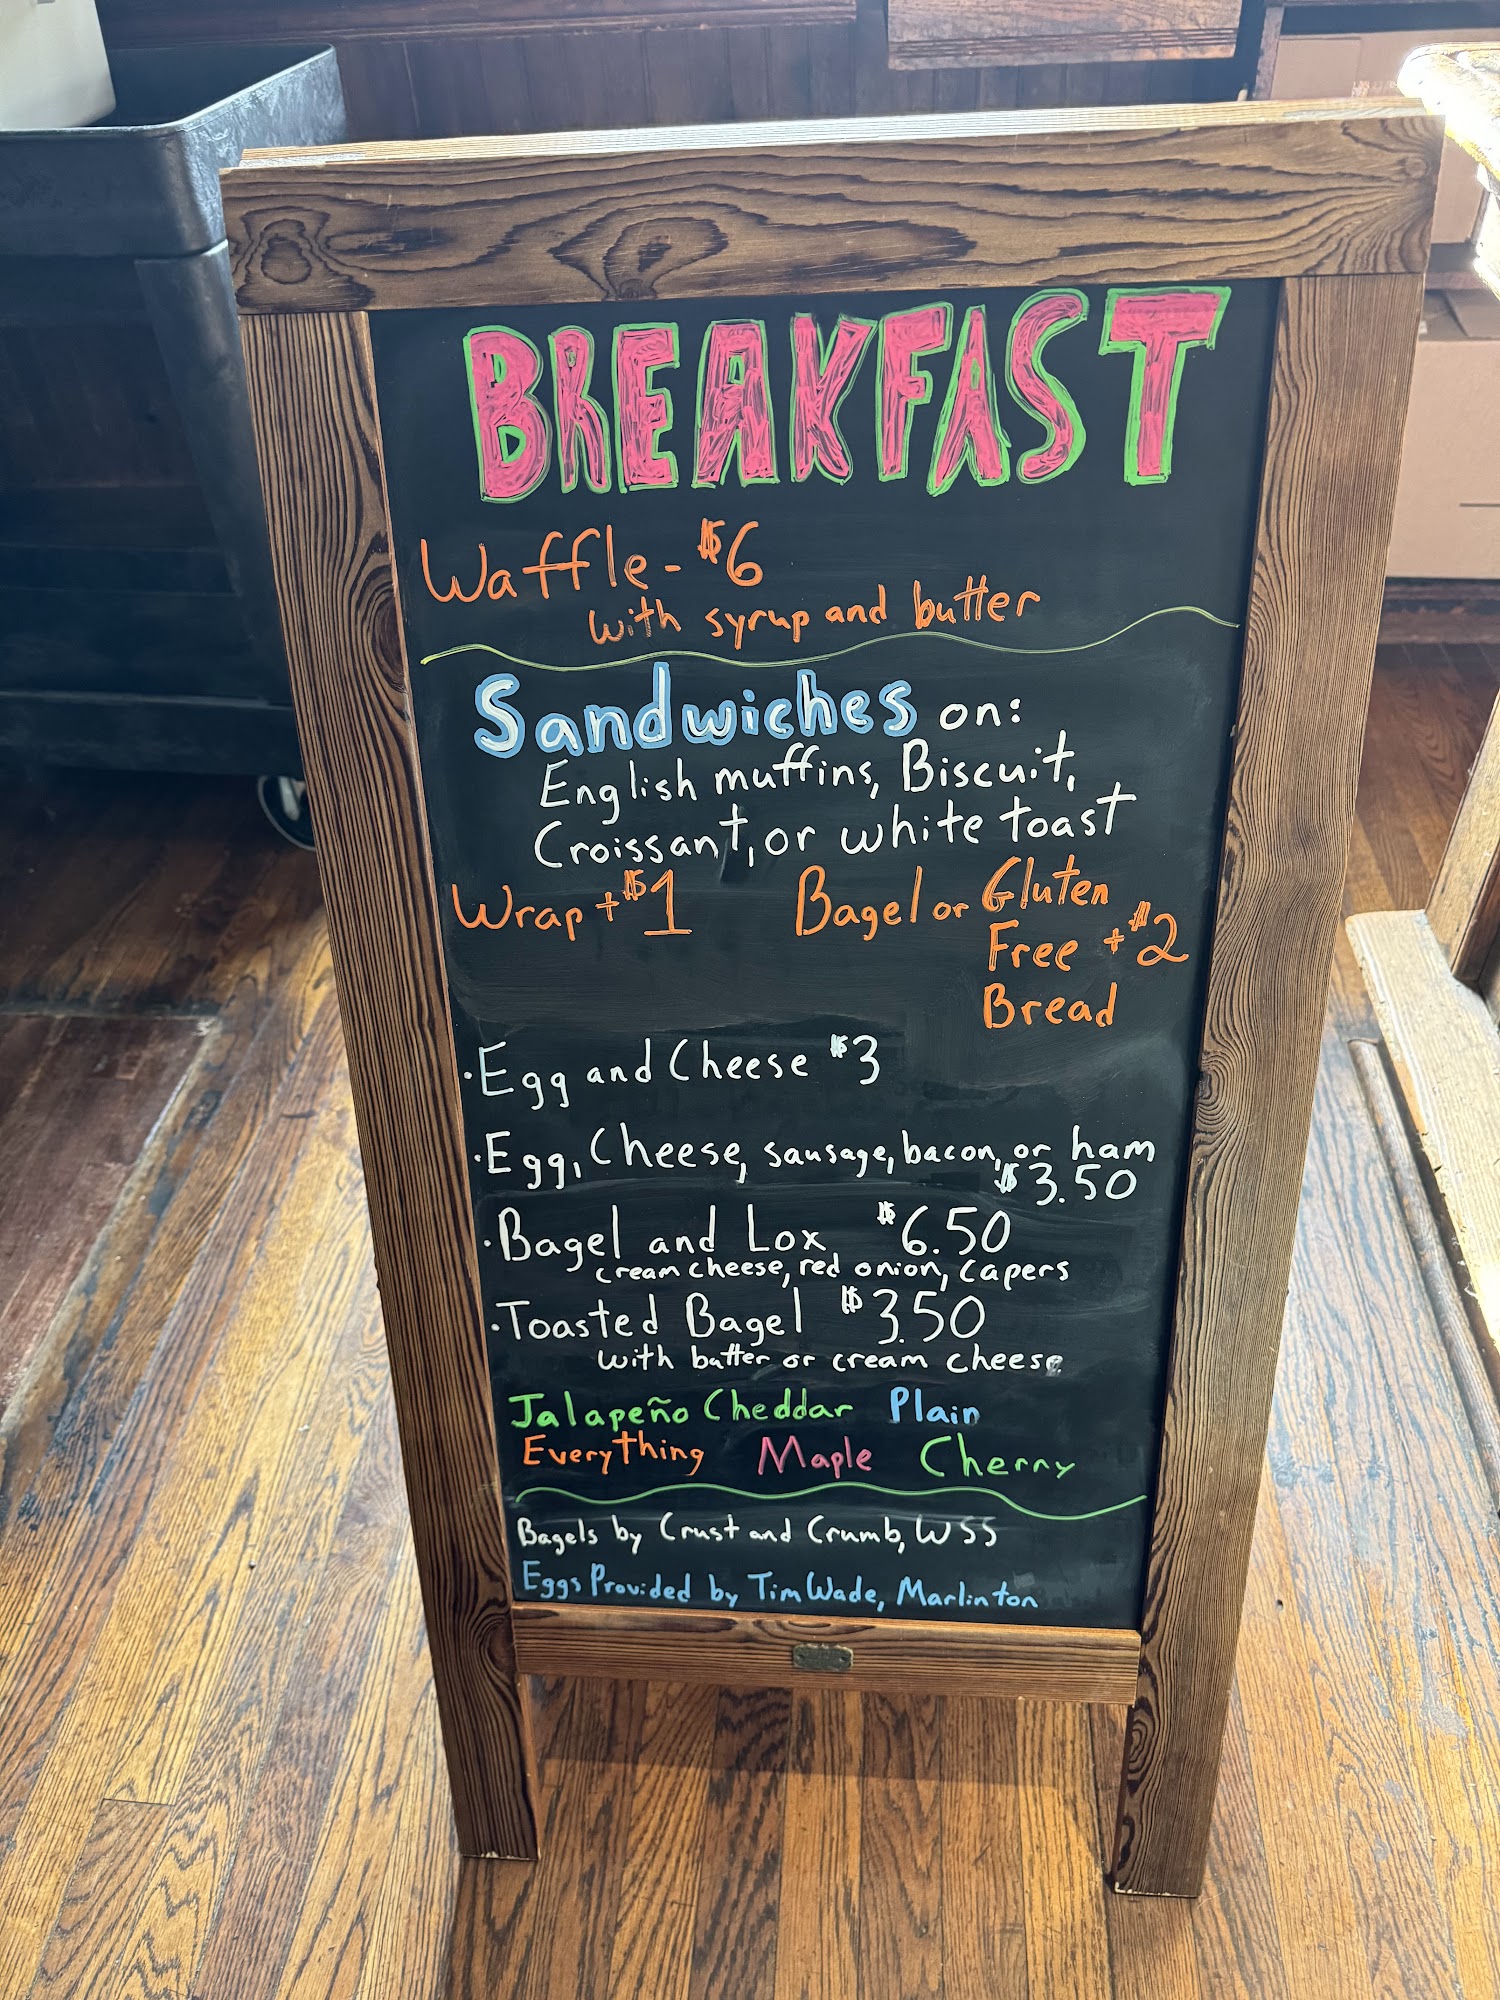 BREAKFAST
Waffle - $6
with syrup and butter
Sandwiches on:
English muffins, Biscuit,
Croissant, or white toast
Wrap + $1
Bagel or Gluten
Free + $2
Bread
· Egg and Cheese $3
· Egg, Cheese, sausage, bacon, or ham
$3.50
· Bagel and Lox $6.50
cream cheese, red onion, capers
· Toasted Bagel $3.50
with butter or cream cheese
Jalapeño Cheddar Plain
Everything Maple Cherry
Bagels by Crust and Crumb, WSS
Eggs Provided by Tim Wade, Marlinton